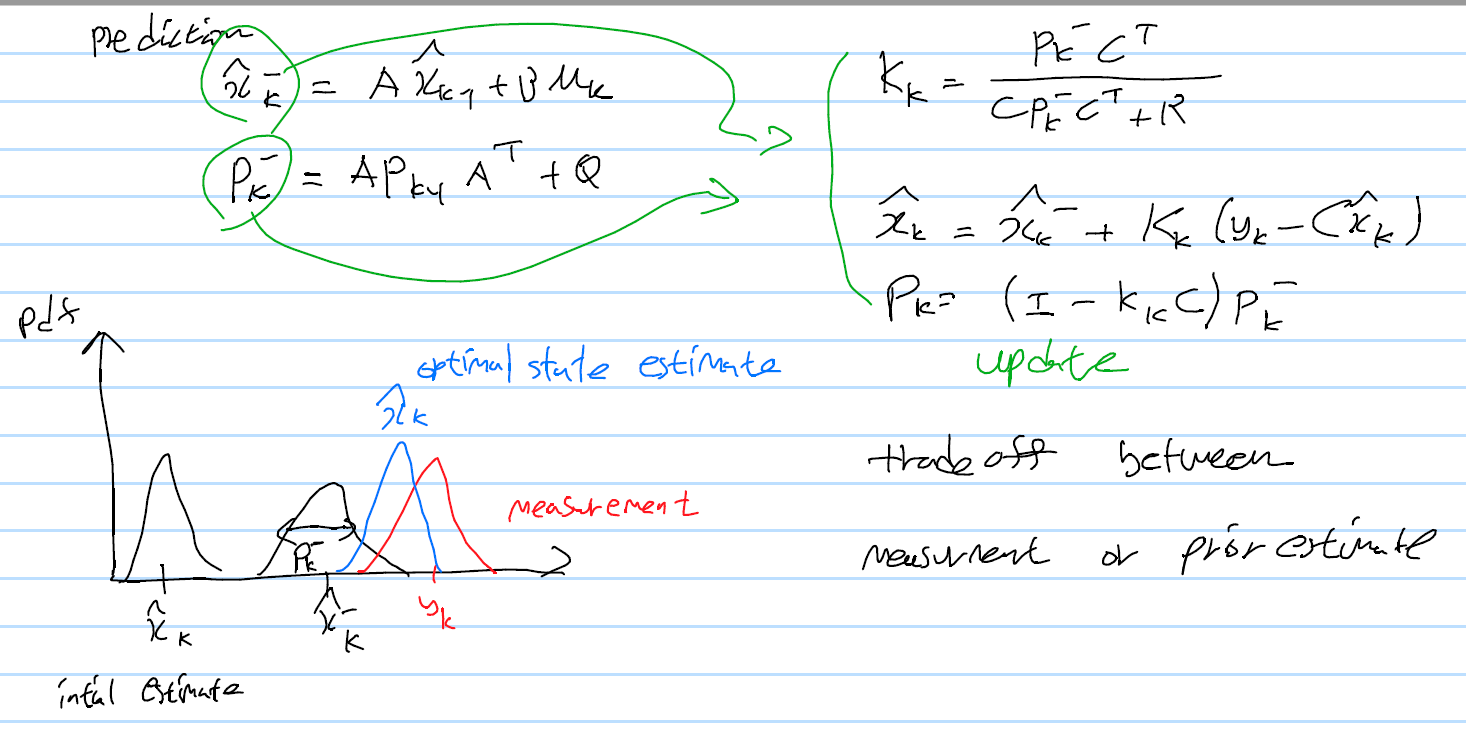 prediction
x̂ₖ⁻ = A x̂ₖ₋₁ + B uₖ
Pₖ⁻ = A Pₖ₋₁ Aᵀ + Q
Kₖ = Pₖ⁻ Cᵀ / (C Pₖ⁻ Cᵀ + R)
x̂ₖ = x̂ₖ⁻ + Kₖ (yₖ − C x̂ₖ)
Pₖ = (I − KₖC) Pₖ⁻
update
pdf
optimal state estimate
x̂ₖ
measurement
Pₖ⁻
x̂ₖ
x̂ₖ⁻
yₖ
intial estimate
trade off between
measurment or prior estimate